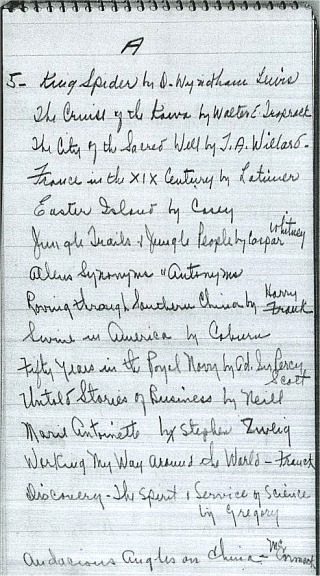 A
5- King Spider by D. Wyndham Lewis
The Cruise of the Kawa by Walter E Traprock
The City of the Sacred Well by T.A. Willard-
France in the XIX Century by Latimer
Easter Island by Casey
Jungle Trails & Jungle People by Caspar Whitney
Allens Synonyms "Antonyms
Roving through Southern China by Harry Franck
Swine in America by Coburn
Fifty Years in the Royal Navy by Ad. Sir Percy Scott
Untold Stories of Business by Neill
Marie Antoinette by Stephen Zweig
Working My Way Around the World - Franck
Discovery - The Spirit & Service of Science
by Gregory
Audacious Angles on China - McCormack